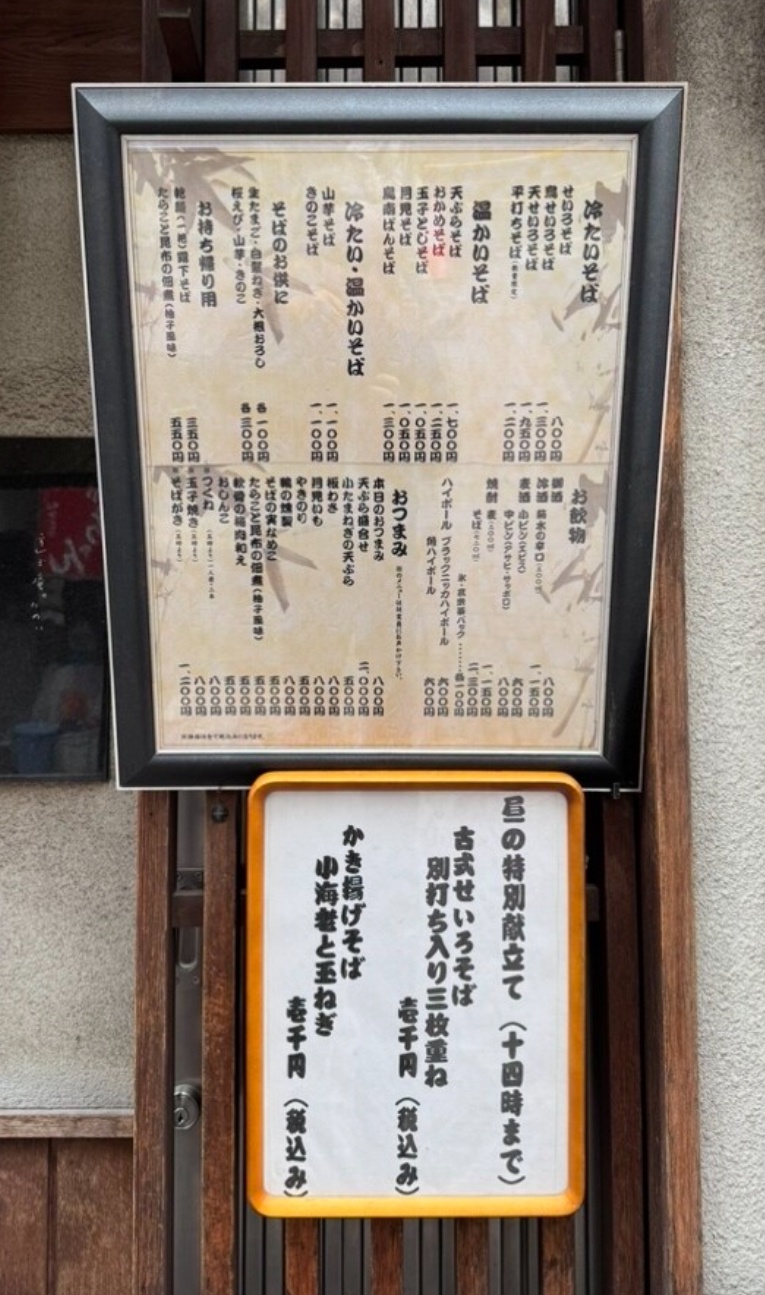 冷たいそば
せいろそば 八〇〇円
鳥せいろそば 一、三〇〇円
天せいろそば 一、九五〇円
平打ちそば(数量限定) 一、二〇〇円
温かいそば
天ぷらそば 一、七〇〇円
おかめそば 一、二五〇円
玉子とじそば 一、〇五〇円
月見そば 一、〇五〇円
鳥南ばんそば 一、三〇〇円
冷たい・温かいそば
山芋そば 一、一〇〇円
きのこそば 一、一〇〇円
そばのお供に
生たまご・白髪ねぎ・大根おろし 各 一〇〇円
桜えび・山芋・きのこ 各 三〇〇円
お持ち帰り用
乾麺(一把)霧下そば 三五〇円
たらこと昆布の佃煮(柚子風味) 五五〇円
お飲物
御酒 八〇〇円
冷酒 菊水の辛口 一、一五〇円
麦酒 小ビン(エビス) 六〇〇円
中ビン(アサヒ・サッポロ) 八〇〇円
焼酎 麦 一、一五〇円
そば 二、三〇〇円
氷・玄米茶パック 各一〇〇円
ハイボール ブラックニッカハイボール 六〇〇円
角ハイボール 六〇〇円
おつまみ
本日のおつまみ 八〇〇円
天ぷら盛合せ 二、〇〇〇円
小たまねぎの天ぷら 五〇〇円
板わさ 八〇〇円
月見いも 八〇〇円
やきのり 五〇〇円
鴨の燻製 八〇〇円
そばの実なめこ 五〇〇円
たらこと昆布の佃煮(柚子風味) 五〇〇円
軟骨の梅肉和え 五〇〇円
おしんこ 五〇〇円
つくね 八〇〇円
玉子焼き 八〇〇円
そばがき 一、二〇〇円
昼の特別献立て(十四時まで)
古式せいろそば
別打ち入り三枚重ね
壱千円(税込み)
かき揚げそば
小海老と玉ねぎ
壱千円(税込み)